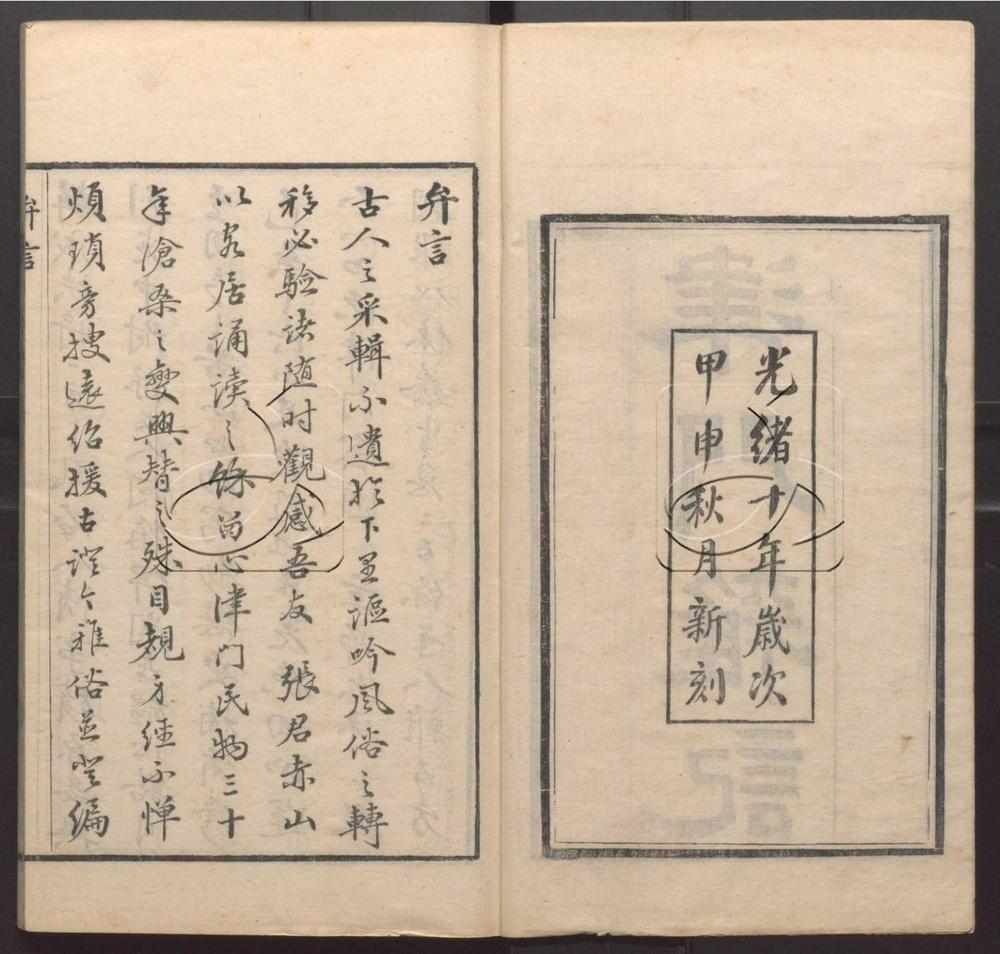 光緒十年嵗次
甲申秋月新刻
弁言
古人之采輯不遺於下里謳吟風俗之轉
移必驗諸随时觀感吾友張君赤山
以客居誦讀之餘留心津门民物三十
年滄桑之變興替之殊目覩身經不憚
煩瑣旁搜遠紹援古證今雅俗並登編
弁言